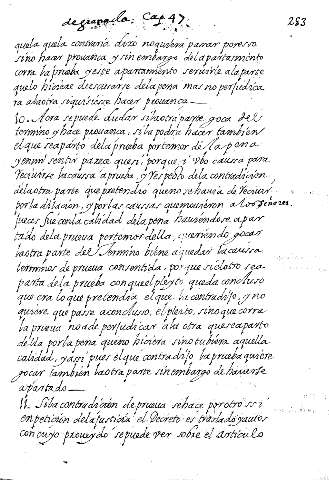 de grado la. Cap 47.
283
quela quela contrario dixo no quiera pasar por esso
sino hacer prouança, y sin embargo del apartamiento
corra la prueba, y este apartamento seruirle a la parte
quelo hiciere de escusarse dela pena mas no perjudica
ra ala otra siquisiesse hacer prouença.—
10. Aora sepuede dudar si la otra parte goça del
termino y hace prouança, si la podra hacer tambien
el que se aparto dela prueba por temor de la pena
y en mi sentir parece que si, porque, si vbo causa para
Reciuirse la caussa a prueba, y Respecto dela contradicion
dela otra parte que pretendio que no se hauia de Reciuir
por la dilacion, y por las caussas que mouieron a los Señores,
pues fue con la calidad dela pena hauiendose apar
tado dela prueua por temor della, queriendo goçar
la otra parte del Termino biene a quedar la caussa
terminos de prueua consentida, por que si el otro sea
parta dela prueba con que el pleyto queda concluso
que era lo que pretendia el que la contradixo, y no
quiere que passe a concluso, el pleito, sino que corra
la prueua no a de perjudicar a la otra que se aparto
della por la pena que no hiciera sino tubiera aquella
calidad, y assi pues el que contradixo la prueba quiere
goçar tambien la otra parte sin embargo de hauerse
apartado—
11. Si la contradicion de prueua se hace por otro si
en peticion dela Justicia el Decreto es traslado y autos
con cuyo proveydo se puede ver sobre el articulo